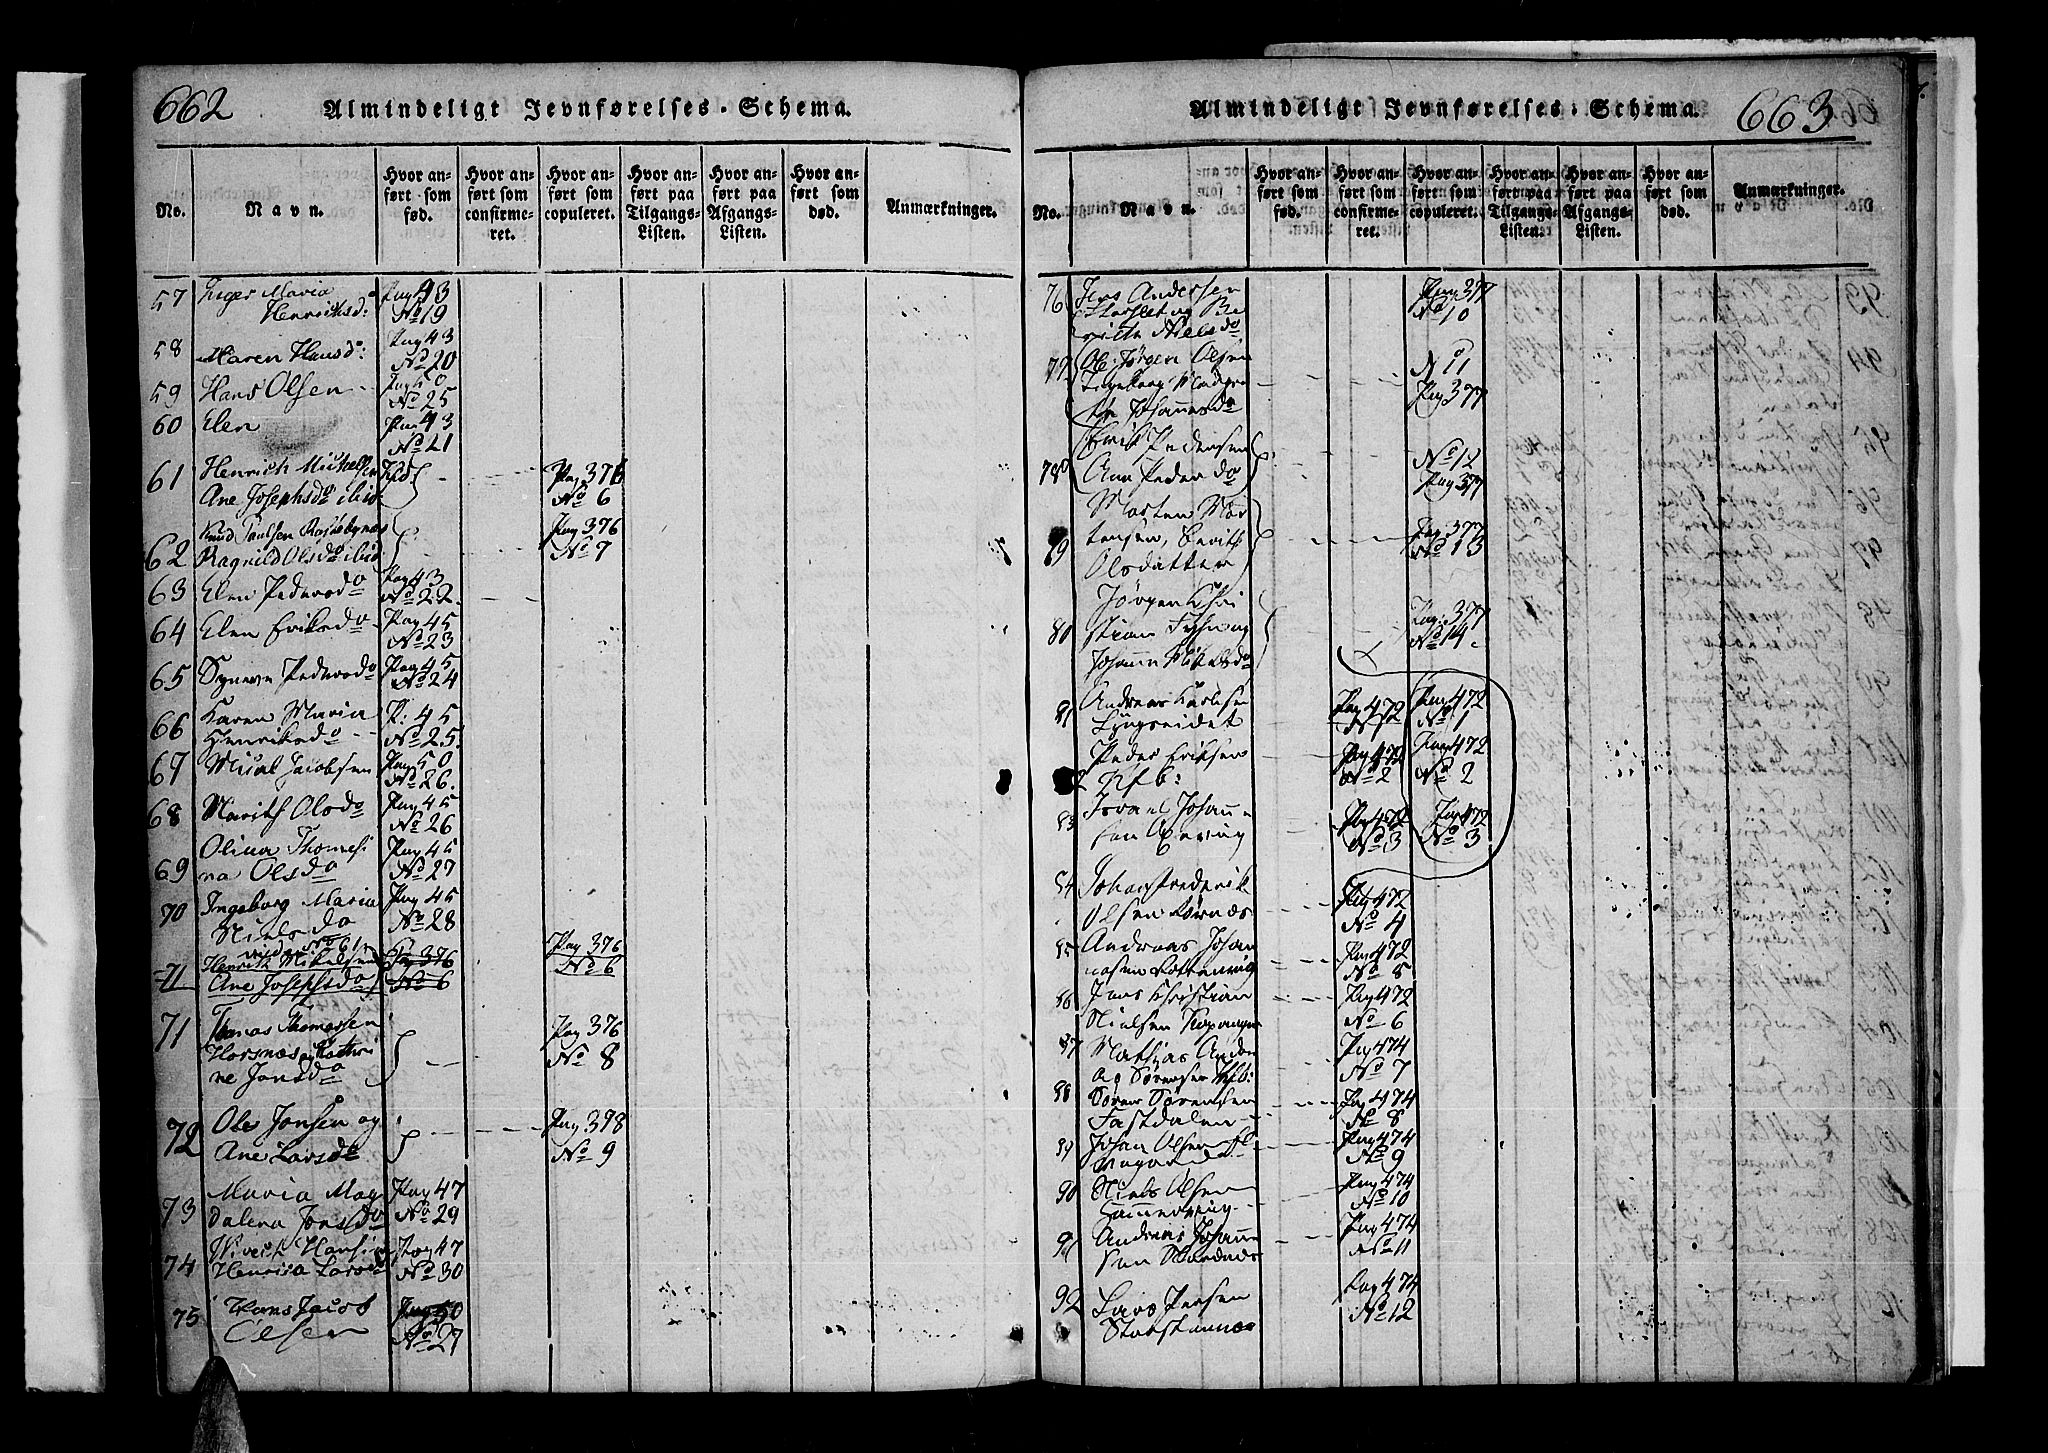 662
Almindeligt Jevnførelses-Schema.
No.
Navn.
Hvor anført som fød.
Hvor anført som confirmeret.
Hvor anført som copuleret.
Hvor anført paa Tilgangs-Listen.
Hvor anført paa Afgangs-Listen.
Hvor anført som død.
Anmærkninger.
57 Inger Maria Pag 43
Henrichsd: No 19
58 Maren Hansd: Pag 43
No 20
59 Hans Olsen Pag 50
No 25
60 Elen Pag 43
No 21
61 Henrich Michelsen Pag 376
Ane Josephsdo ibid No 6
62 Knud Paulsen Pag 376
Ragnild Olsdo ibid No 7
63 Elen Pedersdo Pag 43
No 22.
64 Elen Eriksdo Pag 45
No 23
65 Synneve Pedersdo Pag 45
No 24
66 Karen Maria P: 45
Henriksdo No 25.
67 Jacobsen Pag 50
No 26.
68 Marith Olsdo Pag 45
No 26
69 Olina Thomasi Pag 45
na Olsdo No 27
70 Ingeborg Maria Pag 45
Nielsdo No 28
vide No 61
71 Henrik Mikelsen Pag 376 Pag 376
Ane Josephsdo No 6 No 6
71 Thomas Thomassen Pag 376
Horsnæs og Kathri No 8
ne Jonsdo
72 Ole Jonsen og Pag 378
Ane Larsdo No 9
73 Maria Mag Pag 47
dalena Jonsdo No 29
74 Sivert Hansin Pag 47
Henrica Larsdo No 30
75 Hans Jacob Pag 50
Olsen No 27
Almindeligt Jevnførelses-Schema.
663
No.
Navn.
Hvor anført som fød.
Hvor anført som confirmeret.
Hvor anført som copuleret.
Hvor anført paa Tilgangs-Listen.
Hvor anført paa Afgangs-Listen.
Hvor anført som død.
Anmærkninger.
76 Jens Andersen Pag 377
og Be No 10
rith Nielsdo
77 Ole Jørgen Olsen No 11
Ingeborg Margre Pag 377
the Johannesdo
Erik Pedersen No 12
78 Ane Pedersdo Pag 377
Morten Mor
79 tensen, Berith Pag 377
Olsdatter No 13
Jørgen Chri
80 stian og Pag. 377
Johanna No 14
81 Andreas Karlsen Pag 472 Pag 472
Lyngseidet No 1 No 1
82 Peder Eriksen Pag 472 Pag 472
Kfb: No 2 No 2
83 Israel Johann Pag 472 Pag 472
sen No 3 No 3
84 Johan Frederik Pag 472
Olsen No 4
85 Andreas Johan Pag 472
nesen Rottenvig No 5
86 Jens Christian Pag 472
Nielsen Kopangen No 6
87 Mathias Andre Pag 474
as Sørensen Kfb: No 7
88 Søren Sørensen Pag 474
Fastdalen No 8
89 Johan Olsen Pag 474
No 9
90 Niels Olsen Pag 474
Hamnevig No 10
91 Andreas Johann Pag 474
sen No 11
92 Lars Persen Pag 474
Storstennæs No 12